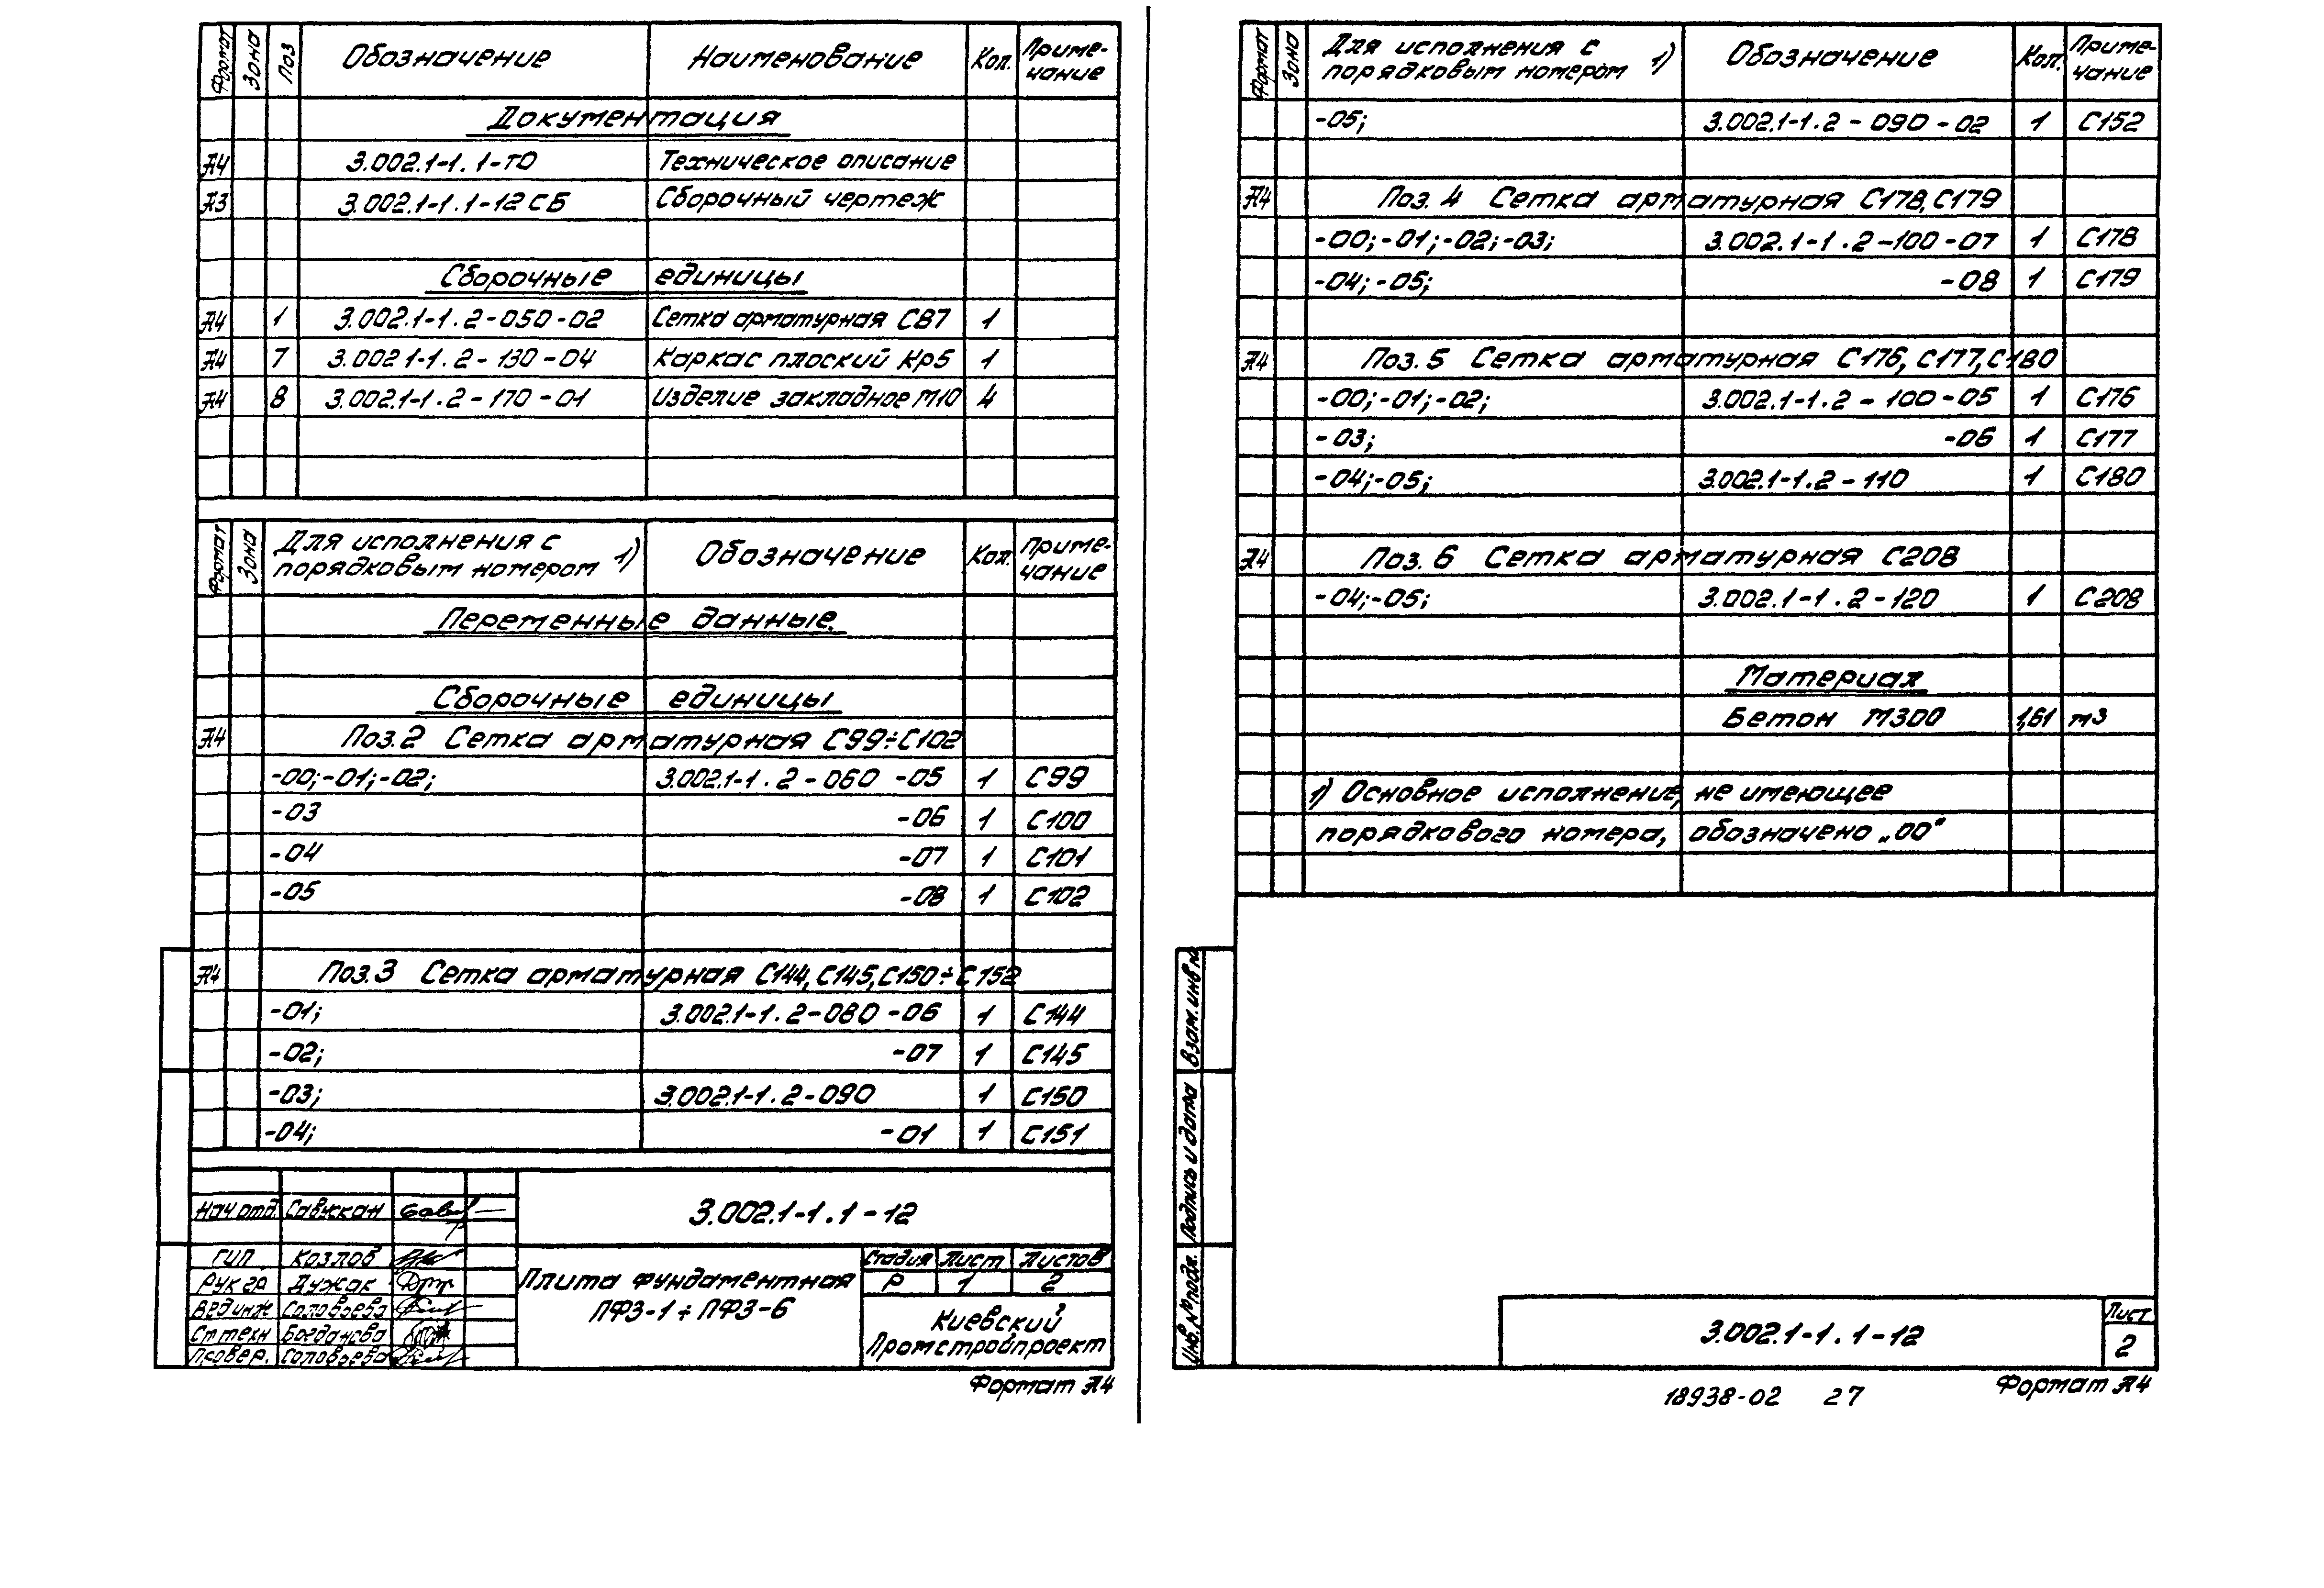 Формат Зона Поз Обозначение Наименование Кол. Приме-
чание
Документация
А4 3.002.1-1.1-ТО Техническое описание
А3 3.002.1-1.1-12 СБ Сборочный чертеж
Сборочные единицы
А4 1 3.002.1-1.2-050-02 Сетка арматурная С87 1
А4 7 3.002.1-1.2-130-04 Каркас плоский Кр5 1
А4 8 3.002.1-1.2-170-01 Изделие закладное М10 4
Формат Зона Для исполнения с
порядковым номером 1) Обозначение Кол. Приме-
чание
Переменные данные.
Сборочные единицы
А4 Поз.2 Сетка арматурная С99÷С102
-00;-01;-02; 3.002.1-1.2-060-05 1 С99
-03 -06 1 С100
-04 -07 1 С101
-05 -08 1 С102
А4 Поз.3 Сетка арматурная С144, С145, С150÷С152
-01; 3.002.1-1.2-080-06 1 С144
-02; -07 1 С145
-03; 3.002.1-1.2-090 1 С150
-04; -01 1 С151
Нач отд. Савускан
ГИП Козлов
Рук гр. Дужак
Вед инж Соловьева
Ст техн Богданова
Провер. Соловьева
3.002.1-1.1-12
Плита фундаментная
ПФ3-1÷ПФ3-6
Стадия Лист Листов
Р 1 2
Киевский
Промстройпроект
Формат А4
Формат Зона Для исполнения с
порядковым номером 1) Обозначение Кол. Приме-
чание
-05; 3.002.1-1.2-090-02 1 С152
А4 Поз. 4 Сетка арматурная С178, С179
-00;-01;-02;-03; 3.002.1-1.2-100-07 1 С178
-04;-05; -08 1 С179
А4 Поз. 5 Сетка арматурная С176, С177, С180
-00;-01;-02; 3.002.1-1.2-100-05 1 С176
-03; -06 1 С177
-04;-05; 3.002.1-1.2-110 1 С180
А4 Поз. 6 Сетка арматурная С208
-04;-05; 3.002.1-1.2-120 1 С208
Материал
Бетон М300 1,61 м3
1) Основное исполнение, не имеющее
порядкового номера, обозначено „00"
Взам. инв №
Подпись и дата
Инв. № подл.
3.002.1-1.1-12
Лист
2
18938-02 27
Формат А4